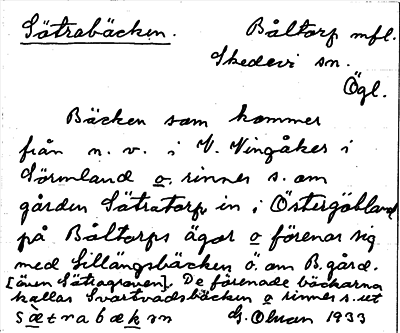 Sätrabäcken.
Båltorp mfl.
Skedevi sn.
Ögl.
Bäcken som kommer
från n. v. i V. Vingåker i
Sörmland o. rinner s. om
gården Sätratorp in i Östergötland
på Båltorps ägor o förenar sig
med Lillängsbäcken ö. om B. gård.
[även Sätragraven]. De förenade bäckarna
kallas Svartvadsbäcken o rinner s. ut
G. Olson 1933